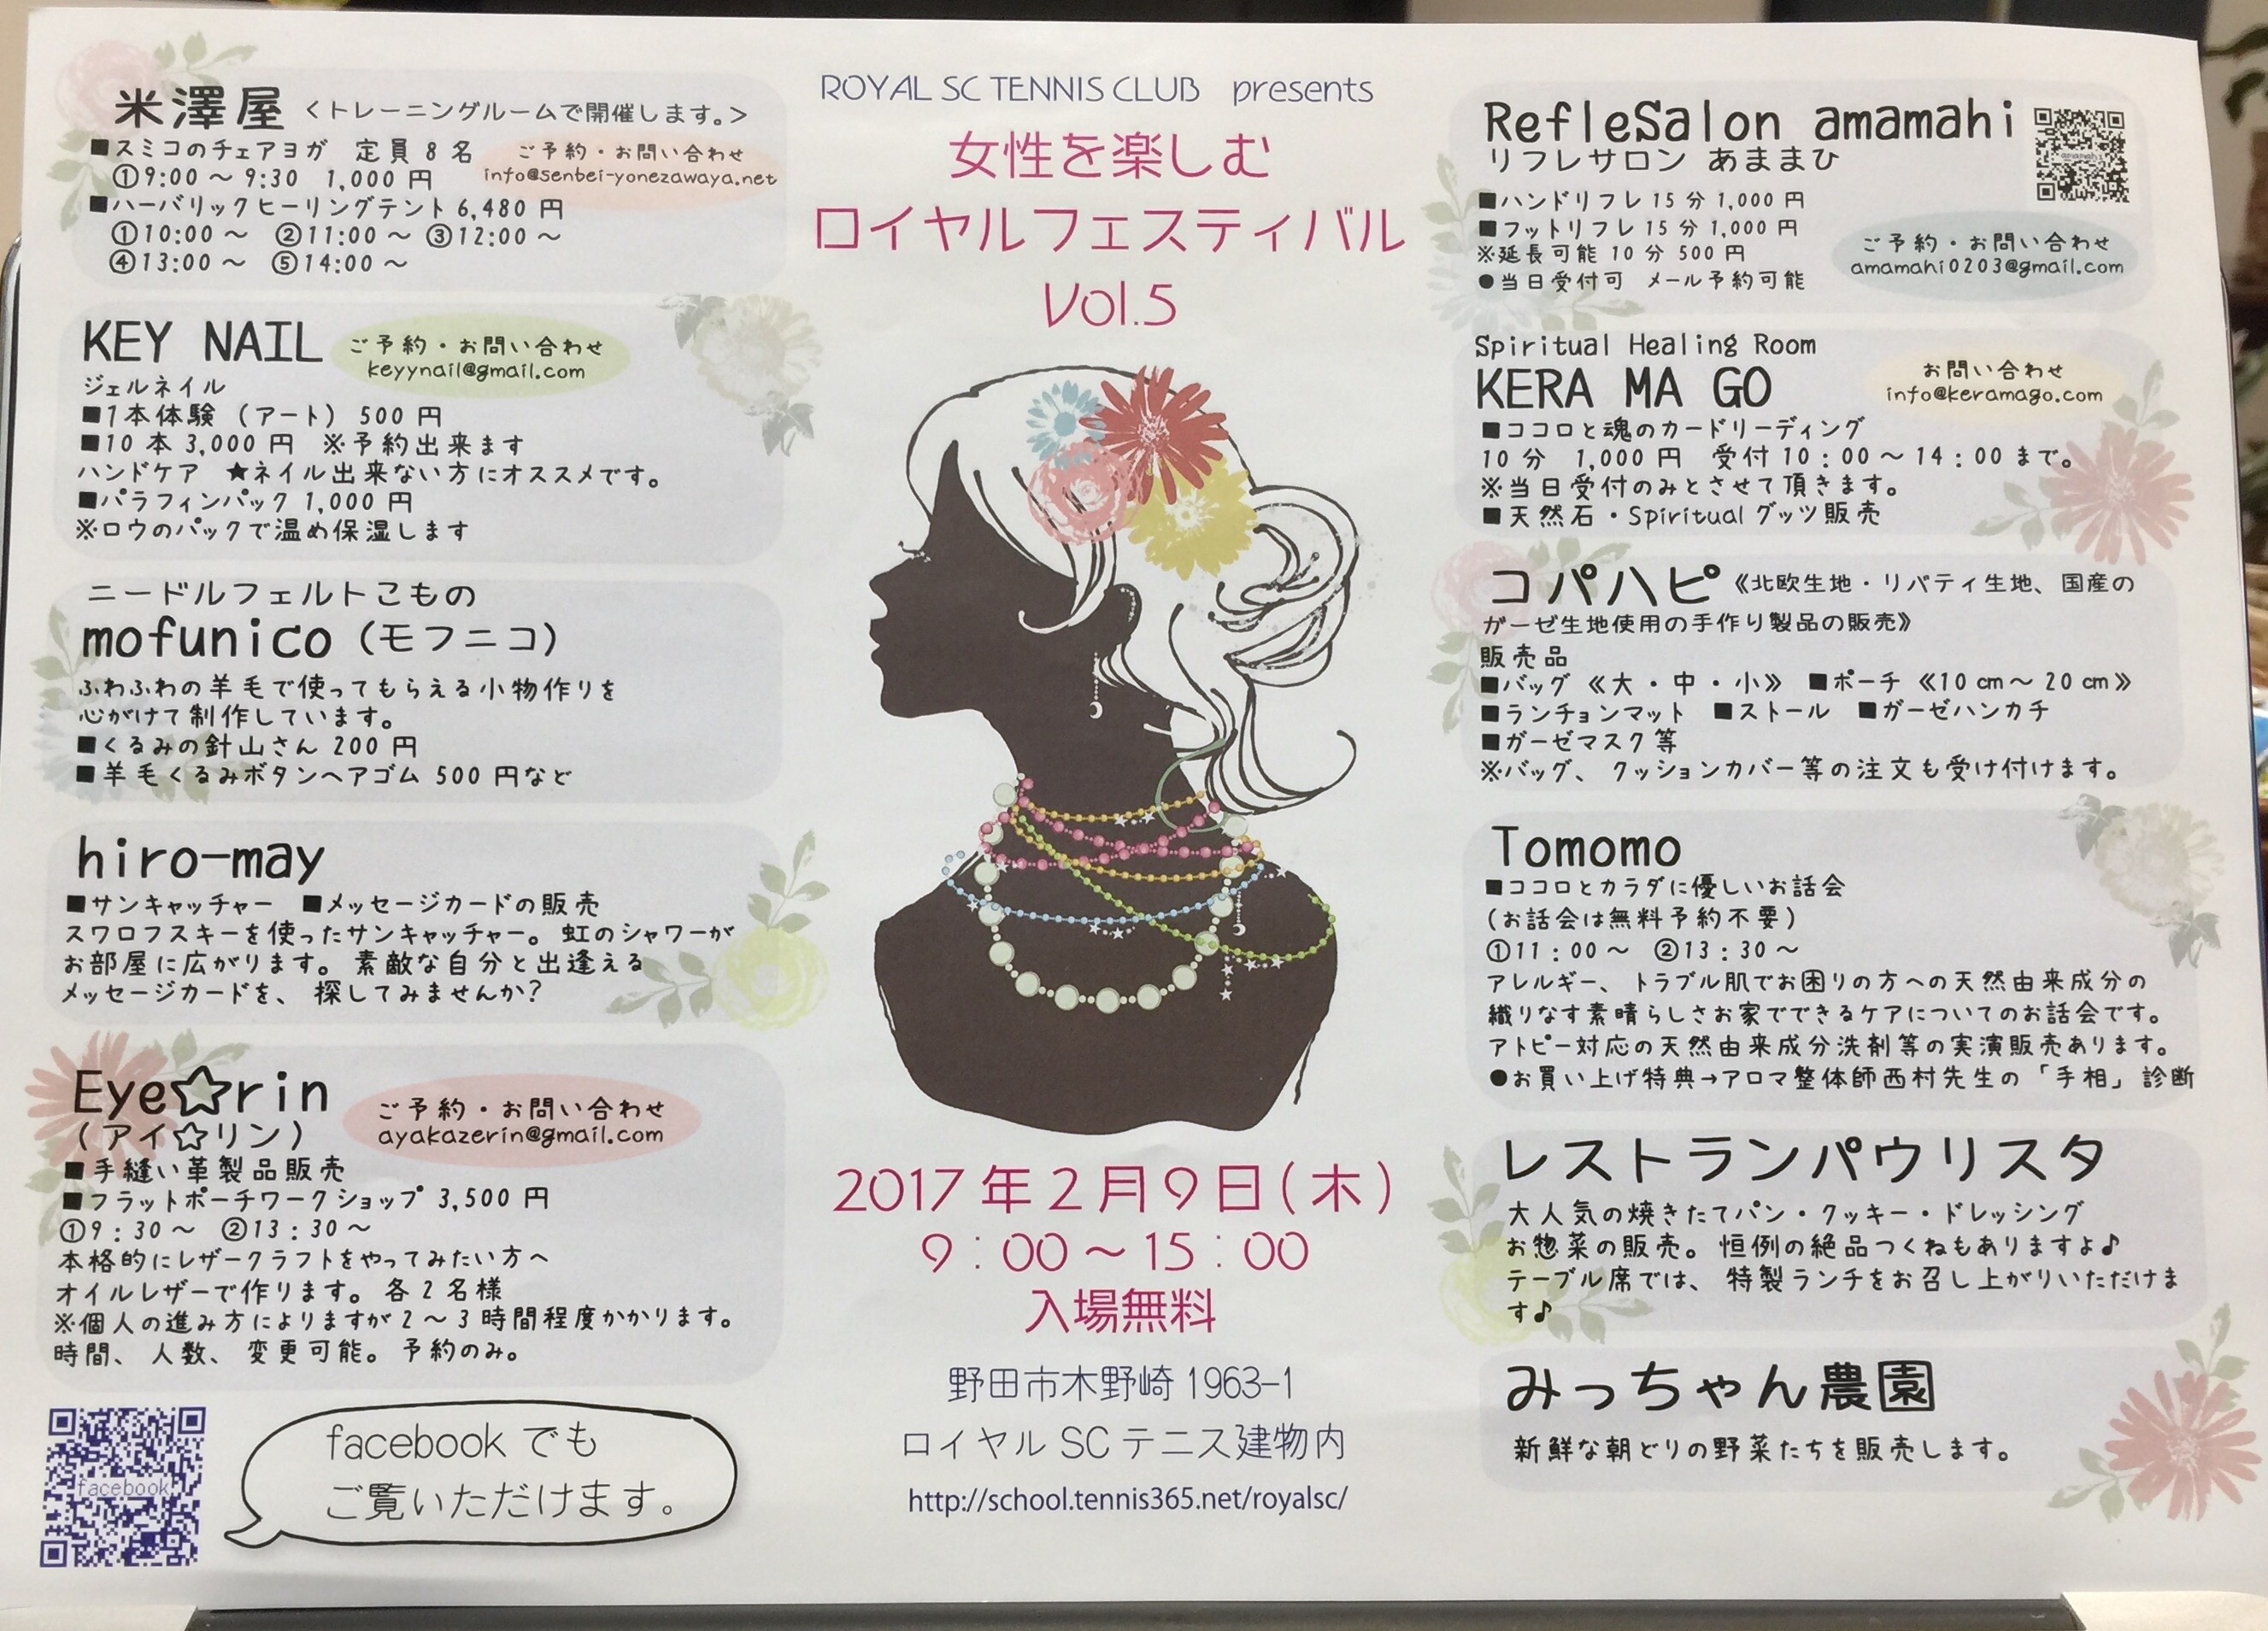 米澤屋 <トレーニングルームで開催します。>
■スミコのチェアヨガ 定員 8 名
①9:00 ～ 9:30 1,000 円
ご予約・お問い合わせ
info@senbei-yonezawaya.net
■ハーバリックヒーリングテント 6,480 円
①10:00 ～ ②11:00 ～ ③12:00 ～
④13:00 ～ ⑤14:00 ～
KEY NAIL
ご予約・お問い合わせ
keyynail@gmail.com
ジェルネイル
■1本体験 （アート） 500 円
■10 本 3,000 円 ※予約出来ます
ハンドケア ★ネイル出来ない方にオススメです。
■パラフィンパック 1,000 円
※ロウのパックで温め保湿します
ニードルフェルトこもの
mofunico（モフニコ）
ふわふわの羊毛で使ってもらえる小物作りを
心がけて制作しています。
■くるみの針山さん 200 円
■羊毛くるみボタンヘアゴム 500 円など
hiro-may
■サンキャッチャー ■メッセージカードの販売
スワロフスキーを使ったサンキャッチャー。虹のシャワーが
お部屋に広がります。素敵な自分と出逢える
メッセージカードを、探してみませんか？
Eye☆rin
（アイ☆リン）
ご予約・お問い合わせ
ayakazerin@gmail.com
■手縫い革製品販売
■フラットポーチワークショップ 3,500 円
①9：30～ ②13：30～
本格的にレザークラフトをやってみたい方へ
オイルレザーで作ります。各 2 名様
※個人の進み方によりますが 2 ～ 3 時間程度かかります。
時間、人数、変更可能。予約のみ。
facebook
facebook でも
ご覧いただけます。
ROYAL SC TENNIS CLUB presents
女性を楽しむ
ロイヤルフェスティバル
Vol.5
2017 年 2 月 9 日（木）
9：00 ～ 15：00
入場無料
野田市木野崎 1963-1
ロイヤル SC テニス建物内
http://school.tennis365.net/royalsc/
RefleSalon amamahi
リフレサロン あままひ
amamahi
■ハンドリフレ 15 分 1,000 円
■フットリフレ 15 分 1,000 円
※延長可能 10 分 500 円
●当日受付可 メール予約可能
ご予約・お問い合わせ
amamahi0203@gmail.com
Spiritual Healing Room
KERA MA GO
お問い合わせ
info@keramago.com
■ココロと魂のカードリーディング
10 分 1,000 円 受付 10：00 ～ 14：00 まで。
※当日受付のみとさせて頂きます。
■天然石・Spiritual グッツ販売
コパハピ 《北欧生地・リバティ生地、国産の
ガーゼ生地使用の手作り製品の販売》
販売品
■バッグ 《大・中・小》 ■ポーチ 《10 ㎝～ 20 ㎝》
■ランチョンマット ■ストール ■ガーゼハンカチ
■ガーゼマスク等
※バッグ、クッションカバー等の注文も受け付けます。
Tomomo
■ココロとカラダに優しいお話会
（お話会は無料予約不要）
①11：00～ ②13：30～
アレルギー、トラブル肌でお困りの方への天然由来成分の
織りなす素晴らしさお家でできるケアについてのお話会です。
アトピー対応の天然由来成分洗剤等の実演販売あります。
●お買い上げ特典→アロマ整体師西村先生の「手相」診断
レストランパウリスタ
大人気の焼きたてパン・クッキー・ドレッシング
お惣菜の販売。恒例の絶品つくねもありますよ♪
テーブル席では、特製ランチをお召し上がりいただけま
す♪
みっちゃん農園
新鮮な朝どりの野菜たちを販売します。